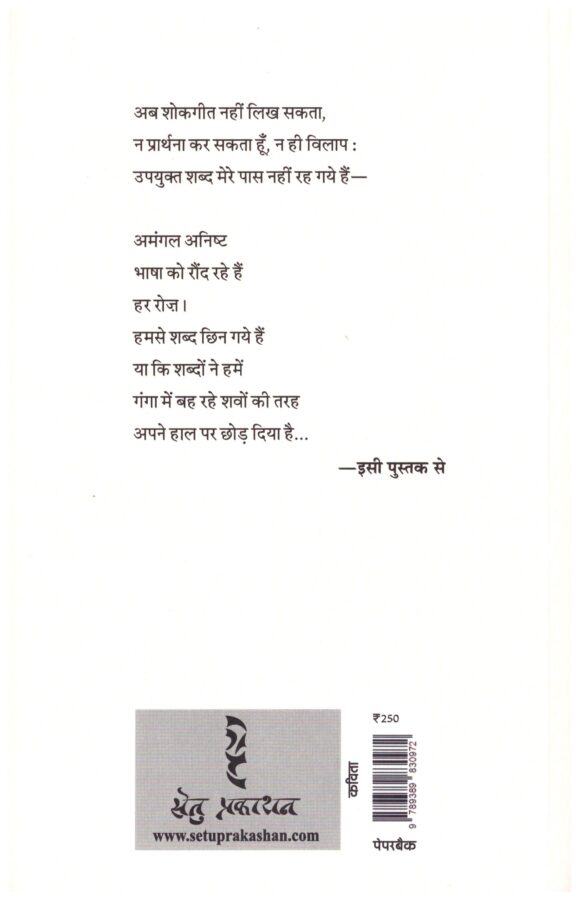 अब शोकगीत नहीं लिख सकता,
न प्रार्थना कर सकता हूँ, न ही विलाप :
उपयुक्त शब्द मेरे पास नहीं रह गये हैं—
अमंगल अनिष्ट
भाषा को रौंद रहे हैं
हर रोज़।
हमसे शब्द छिन गये हैं
या कि शब्दों ने हमें
गंगा में बह रहे शवों की तरह
अपने हाल पर छोड़ दिया है...
—इसी पुस्तक से
सेतु प्रकाशन
www.setuprakashan.com
₹250
कविता
9 789389 830972
पेपरबैक